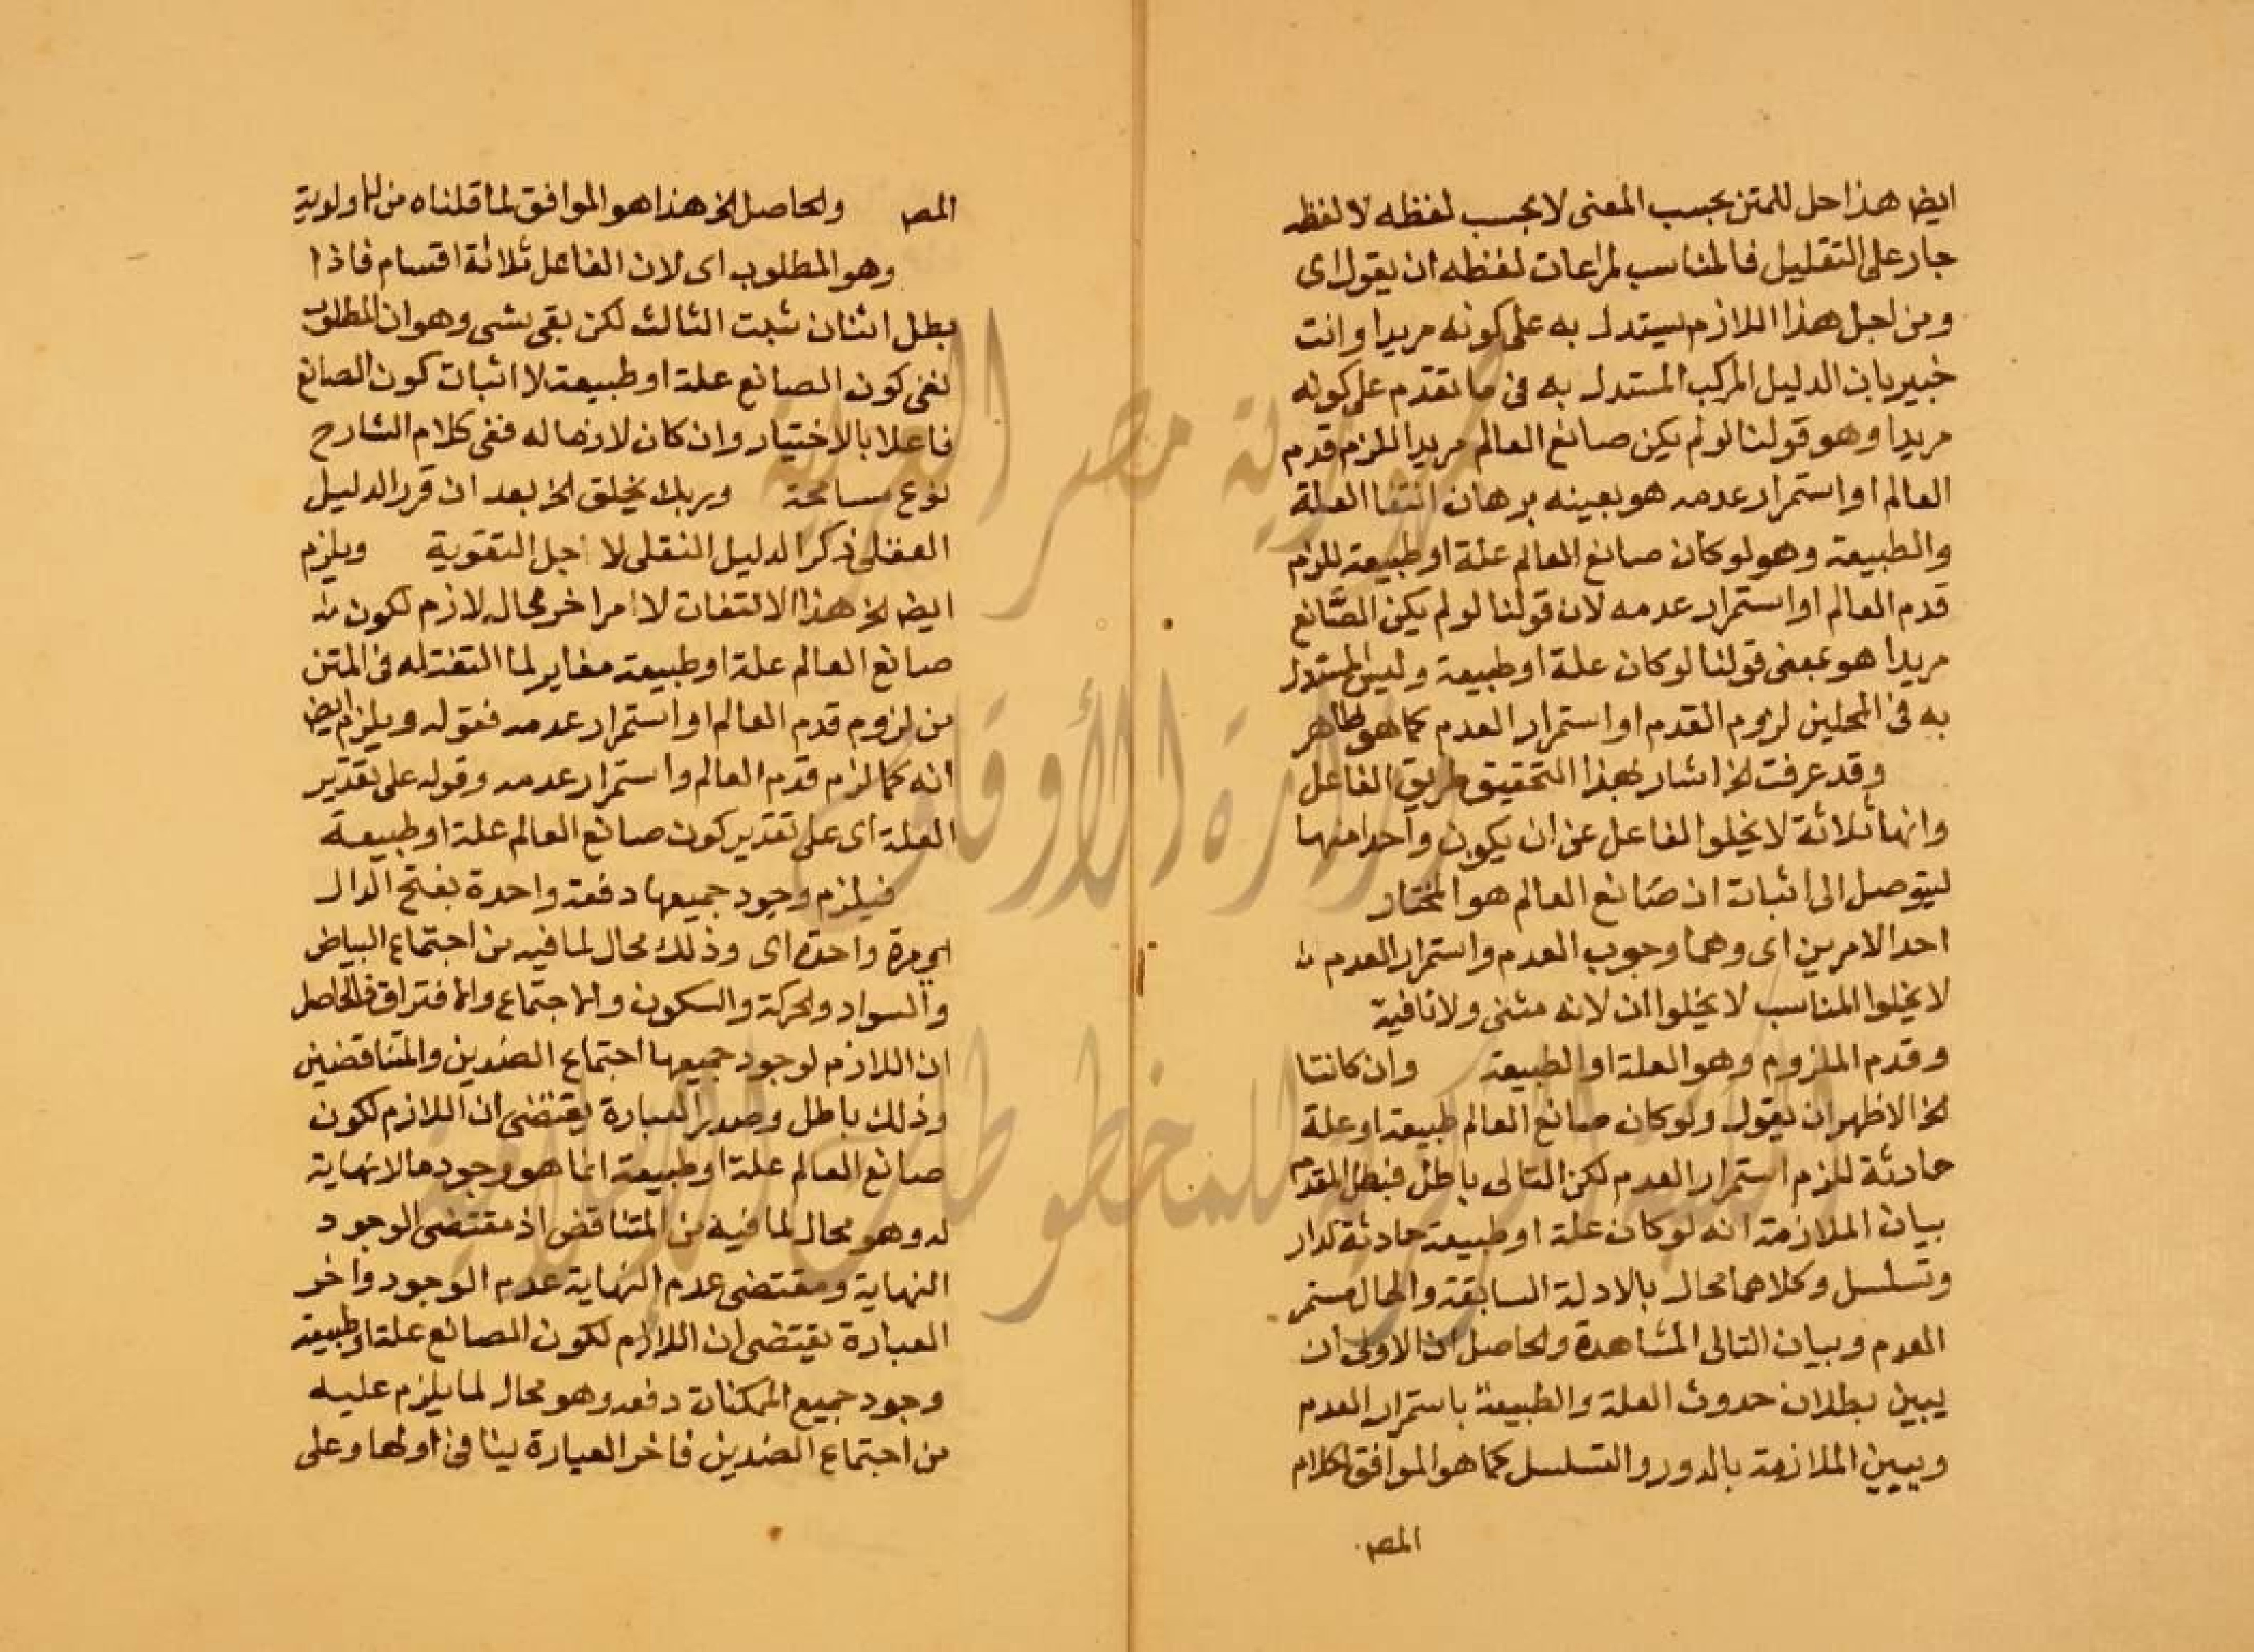 ايض هذا حل للمتن بحسب المعنى لا بحسب لفظه لا لفظه
جار على التقليل فالمناسب لمراعات لفظه ان يقول اى
ومن اجل هذا اللازم يستدل به على كونه مريدا وانت
خبير بان الدليل المركب المستدل به فى ما تقدم على كونه
مريدا وهو قولنا لو لم يكن صانع العالم مريدا للزم قدم
العالم او استمرار عدمه هو بعينه برهان انتفا العلة
والطبيعة وهو لو كان صانع العالم علة او طبيعة للزم
قدم العالم او استمرار عدمه لان قولنا لو لم يكن الصانع
مريدا هو بمعنى قولنا لو كان علة او طبيعة وليس المستدل
به فى المحلين لزوم القدم او استمرار العدم كما هو ظاهر
وقد عرفت الخ اشار بهذا التحقيق طريق الفاعل
وانها ثلاثة لا يخلوا الفاعل عن ان يكون واحدا منها
ليتوصل الى اثبات ان صانع العالم هو المختار
احد الامرين اى وهما وجوب العدم واستمرار العدم
لا يخلوا المناسب لا يخلوا ان لانه مثنى ولا نافية
وقدم الملزوم وهو العلة او الطبيعة وان كانتا
الخ الاظهر ان يقول ولو كان صانع العالم طبيعة او علة
حادثة للزم استمرار العدم لكن التالى باطل فبطل المقدم
بيان الملازمة انه لو كان علة او طبيعة حادثة لدار
وتسلسل وكلاهما محال بالادلة السابقة والمحال مستمر
العدم وبيان التالى المشاهدة والحاصل ان الاولى ان
يبين بطلان حدوث العلة والطبيعة باستمرار العدم
ويبين الملازمة بالدور والتسلسل كما هو الموافق لكلام
المص
المص والحاصل الخ هذا هو الموافق لما قلناه من الاولوية
وهو المطلوب اى لان الفاعل ثلاثة اقسام فاذا
بطل اثنان ثبت الثالث لكن بقى شى وهو ان المطلوب
نفى كون الصانع علة او طبيعة لا اثبات كون الصانع
فاعلا بالاختيار وان كان لازما له ففى كلام الشارح
نوع مسامحة وربك يخلق الخ بعد ان قرر الدليل
العقلى ذكر الدليل النقلى لا اجل التقوية ويلزم
ايض الخ هذا الالتفات لا امر اخر محال لازم لكون
صانع العالم علة او طبيعة مغاير لما التفت له فى المتن
من لزوم قدم العالم او استمرار عدمه فقوله ويلزم ايض
انه كما لزم قدم العالم واستمرار عدمه وقوله على تقدير
العلة اى على تقدير كون صانع العالم علة او طبيعة
فيلزم وجود جميعها دفعة واحدة بفتح الدال
اى مرة واحدة اى وذلك محال لما فيه من اجتماع البياض
والسواد والحركة والسكون والاجتماع والافتراق فالحاصل
ان اللازم لوجود جميعها اجتماع الضدين والمتناقضين
وذلك باطل وصدر العبارة يقتضى ان اللازم لكون
صانع العالم علة او طبيعة انما هو وجود ما لا نهاية
له وهو محال لما فيه من المتناقض اذ مقتضى الوجود
النهاية ومقتضى عدم النهاية عدم الوجود واخر
العبارة يقتضى ان اللازم لكون الصانع علة او طبيعة
وجود جميع الممكنات دفعه وهو محال لما يلزم عليه
من اجتماع الضدين فاخر العبارة ينافى اولها وعلى
جمهورية مصر العربية
وزارة الأوقاف
المكتبة المركزية للمخطوطات الإسلامية